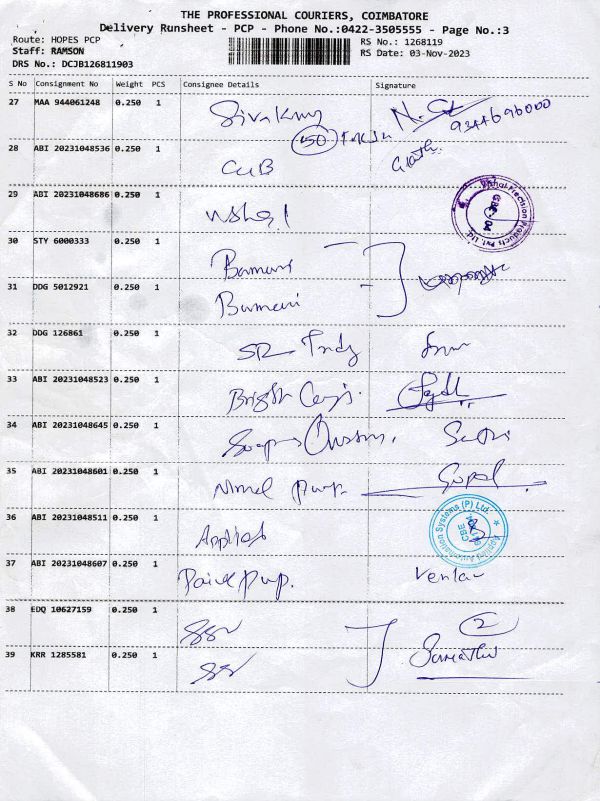 THE PROFESSIONAL COURIERS, COIMBATORE
Delivery Runsheet - PCP - Phone No.:0422-3505555 - Page No.:3
Route: HOPES PCP RS No.: 1268119
Staff: RAMSON RS Date: 03-Nov-2023
DRS No.: DCJB126811903
S No Consignment No Weight PCS Consignee Details Signature
27 MAA 944061248 0.250 1
50
28 ABI 20231048536 0.250 1 CUB
29 ABI 20231048686 0.250 1
Vishal Precision Products Pvt Ltd. CBE. 04
30 STY 6000333 0.250 1 Bannari
31 DDG 5012921 0.250 1 Bannari
32 DDG 126861 0.250 1 SR
33 ABI 20231048523 0.250 1 Bright
34 ABI 20231048645 0.250 1
35 ABI 20231048601 0.250 1 Nirmal Pump. Gopal
36 ABI 20231048511 0.250 1 Applied
Applied Automation Systems (P) Ltd. CBE
37 ABI 20231048607 0.250 1 Pump.
38 EDQ 10627159 0.250 1 SSV 2
39 KRR 1285581 0.250 1 SSV Sumathi